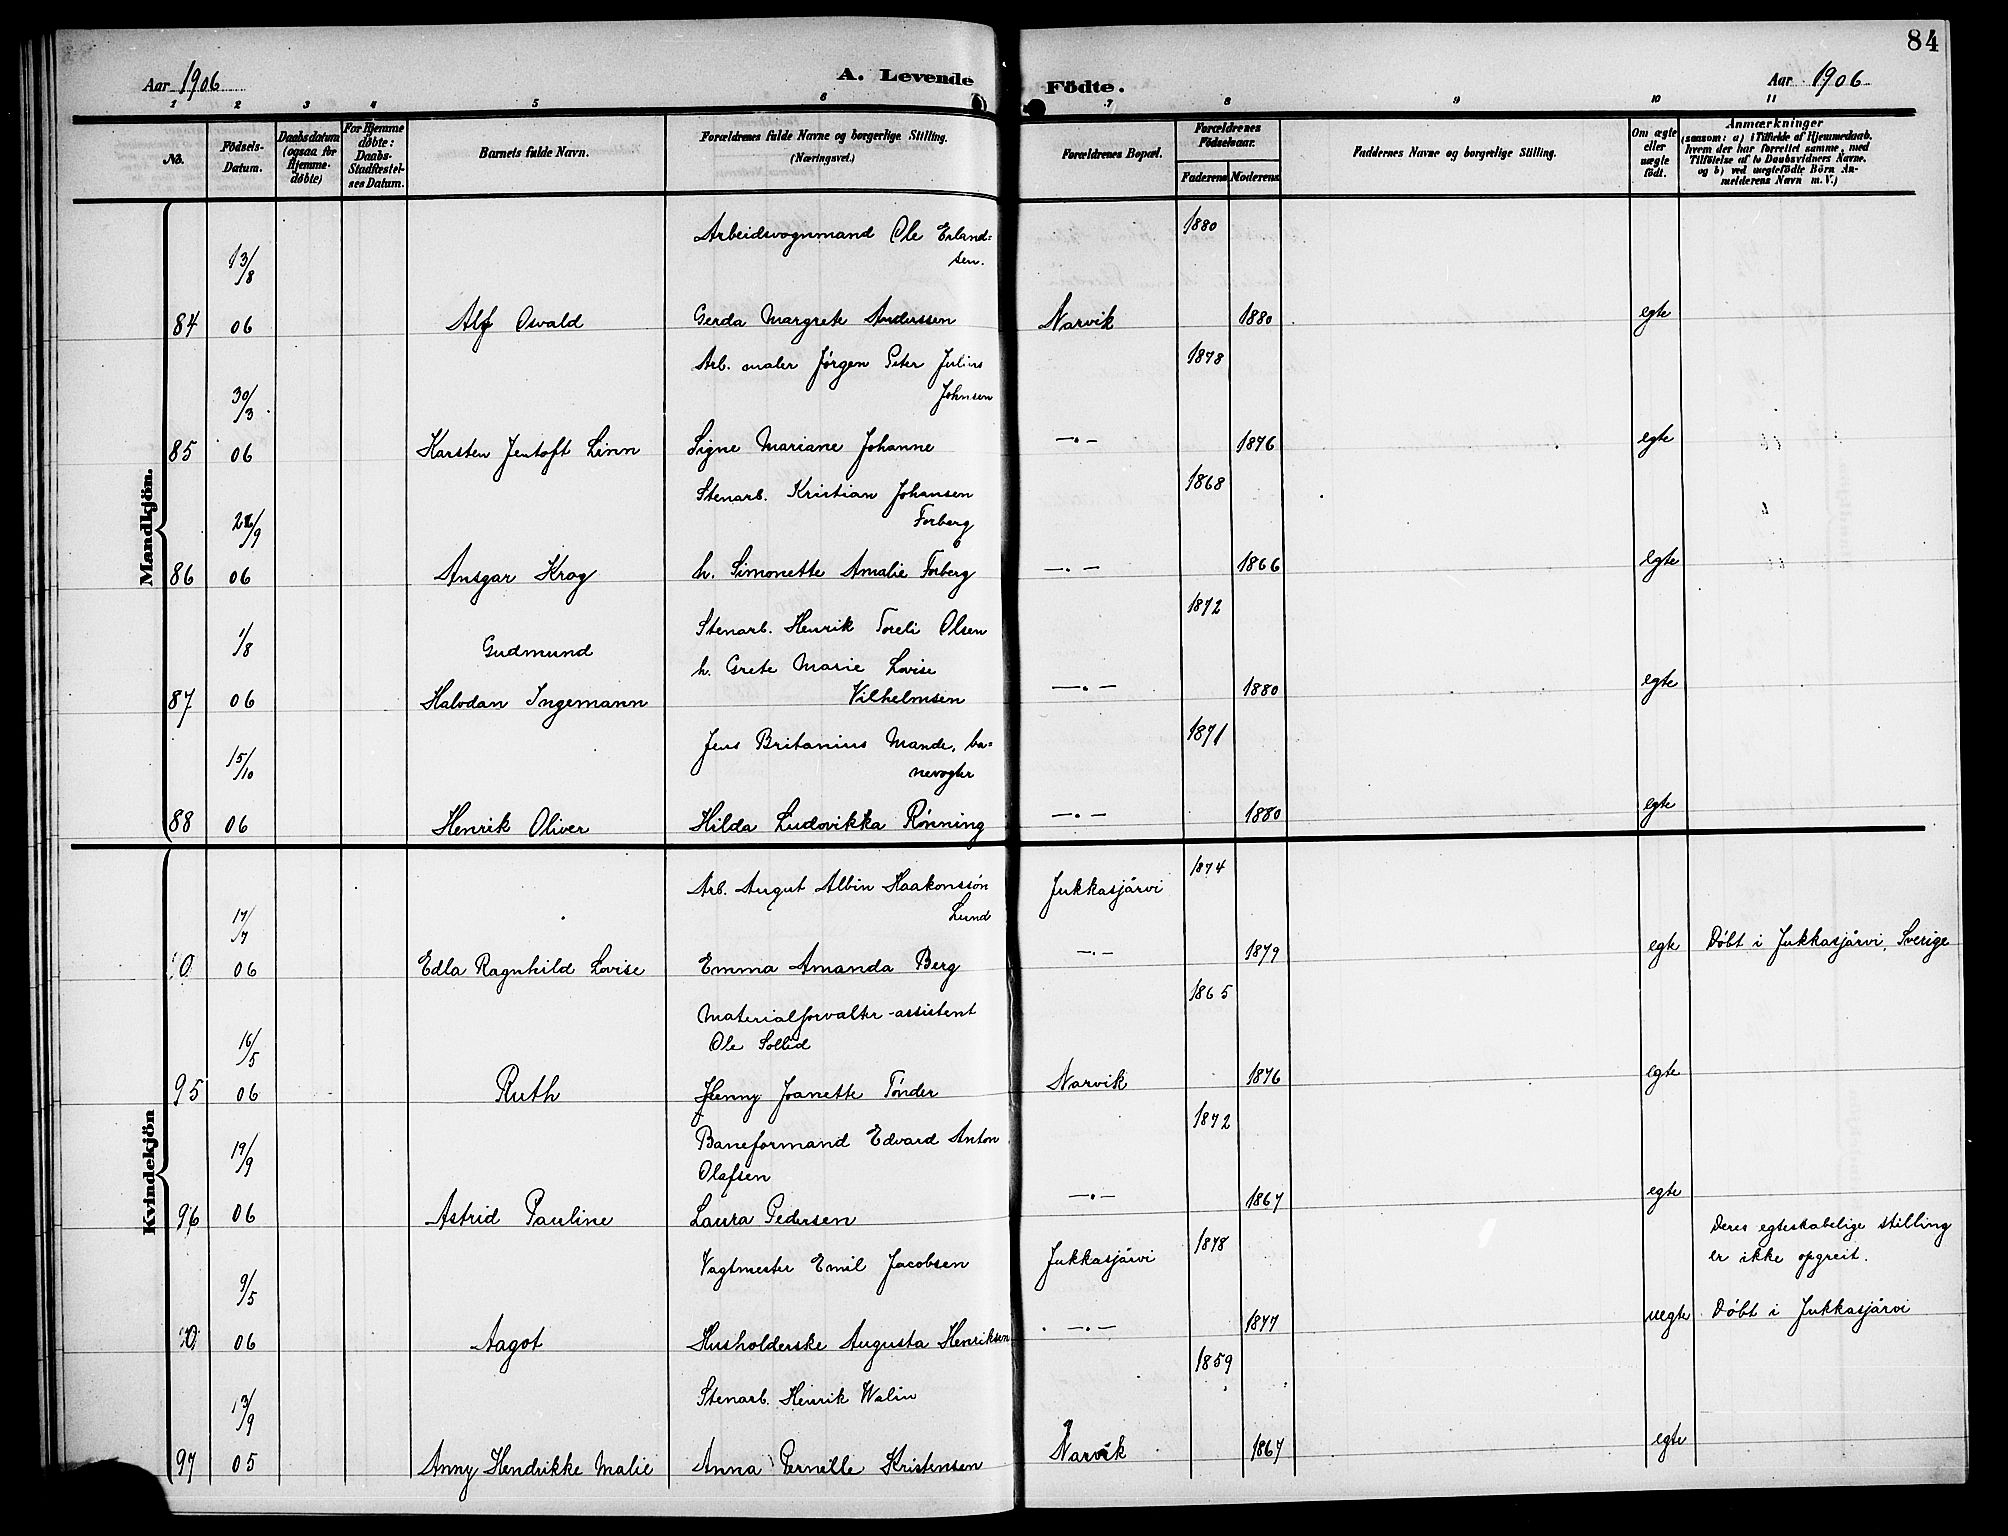 84
Aar 1906
A. Levende Födte.
Aar 1906
1 2 3 4 5 6 7 8 9 10 11
No.
Födsels-Datum.
Daabsdatum (ogsaa for Hjemme-døbte)
For Hjemme døbte: Daabs-Stadfæstelses Datum.
Barnets fulde Navn.
Forældrenes fulde Navne og borgerlige Stilling.
(Næringsvei.)
Forældrenes Bopæl.
Forældrenes Födselsaar.
Faderens Moderens
Faddernes Navne og borgerlige Stilling.
Om ægte eller uægte födt.
Anmærkninger
(saasom: a) i Tilfælde af Hjemmedaab,
hvem der har forrettet samme, med
Tilføielse af to Daabsvidners Navne,
og b) ved uægtefödte Börn An-
melderens Navn m. V.)
Mandkjön.
Arbeidsvognmand Ole Erland= 1880
13/8 sen.
84 06 Alf Osvald Gerda Margrete Anderssen Narvik 1880 egte
Arb. maler Jørgen Peter Julius 1878
30/3 Johnsen
85 06 Karsten Jentoft Linn Signe Mariane Johanne —.— 1876 egte
Stenarb. Kristian Johansen 1868
26/9 Forberg
86 06 Ansgar Krog h. Simonette Amalie Forberg —.— 1866 egte
1872
1/8 Stenarb. Henrik Toreli Olsen
Gudmund h. Grete Marie Lovise
87 06 Halvdan Ingemann Vilhelmsen —.— 1880 egte
Jens Britanius Mande, ba= 1871
15/10 nevogter
88 06 Henrik Oliver Hilda Ludovikka Rønning —.— 1880 egte
Kvindekjön
Arb. Augut Albin Haakonssøn Jukkasjärvi 1874
17/7 Lund
0 06 Edla Ragnhild Lovise Emma Amanda Berg —.— 1879 egte Døbt i Jukkasjärvi, Sverige
Materialforvalter-assistent 1865
16/5 Ole Sollid
95 06 Ruth Jenny Joanette Tønder Narvik 1876 egte
Baneformand Edvard Anton 1872
19/9 Olafsen
96 06 Astrid Pauline Laura Pedersen —.— 1867 egte
Deres egteskabelige stilling
Vagtmester Emil Jacobsen Jukkasjärvi 1878 er ikke opgreit.
9/5
0 06 Aagot Husholderske Augusta Henriksen —.— 1877 uegte Døbt i Jukkasjärvi
1859
13/9 Stenarb. Henrik Walin
97 05 Anny Hendrikke Malie Anna Pernille Kristensen Narvik 1867 egte